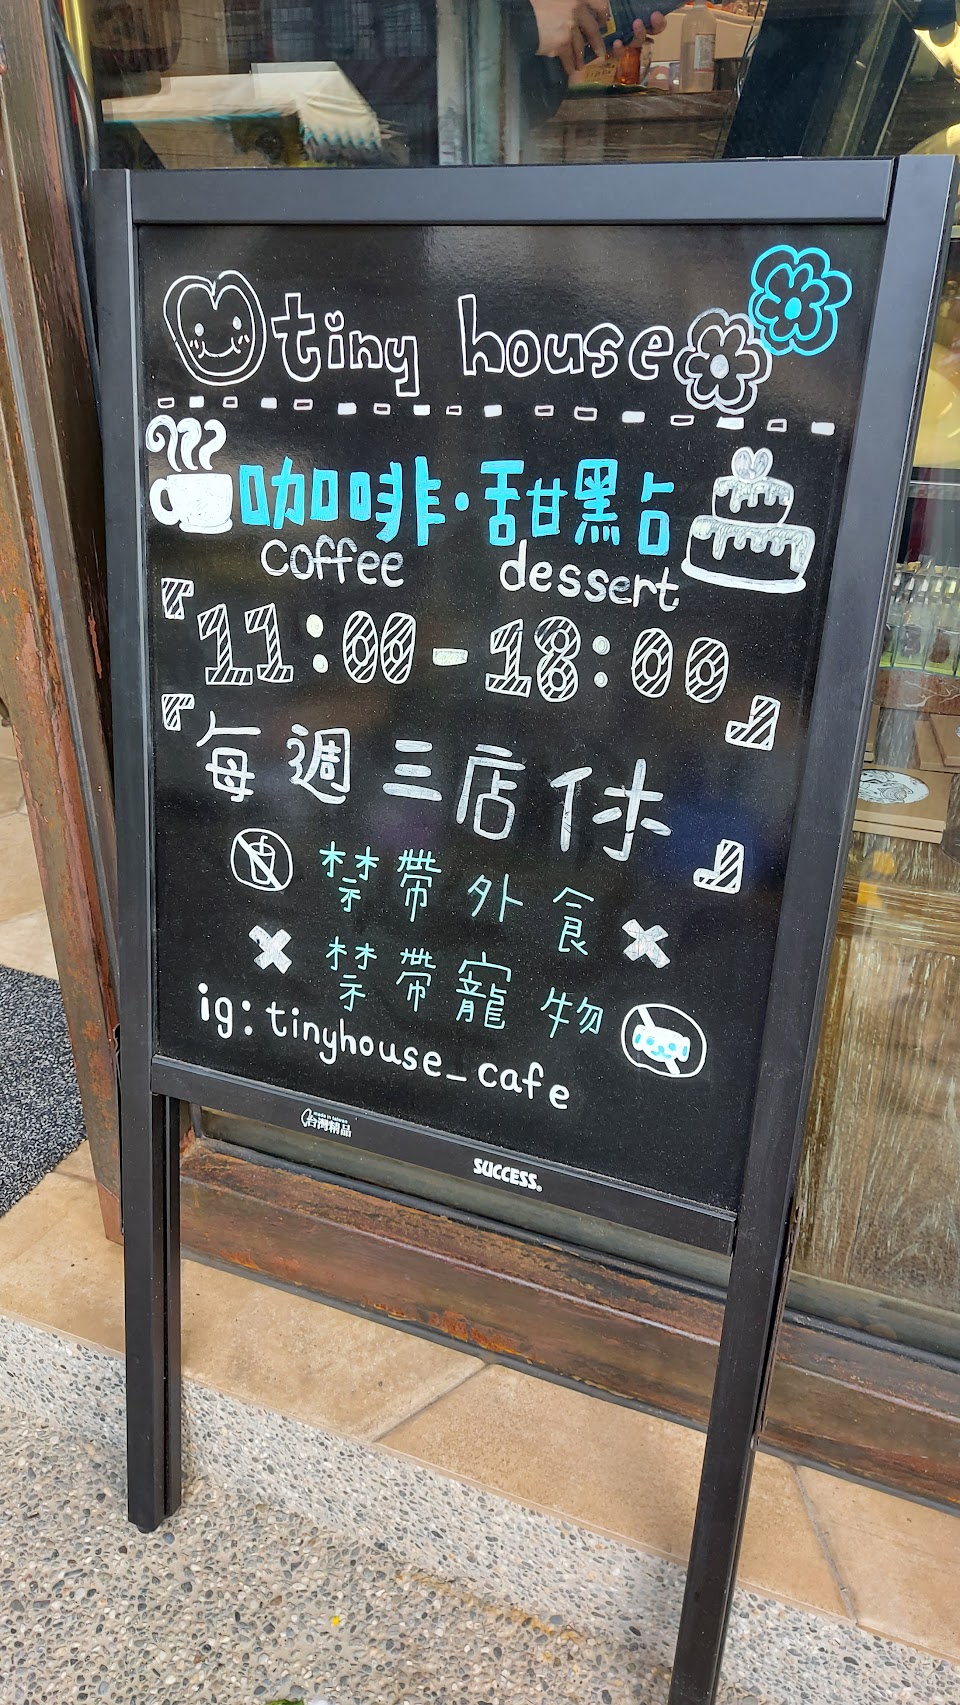 tiny house
咖啡·甜點
coffee dessert
『11:00-18:00』
『每週三店休』
禁帶外食
禁帶寵物
ig: tinyhouse_cafe
made in taiwan
台灣精品
SUCCESS®